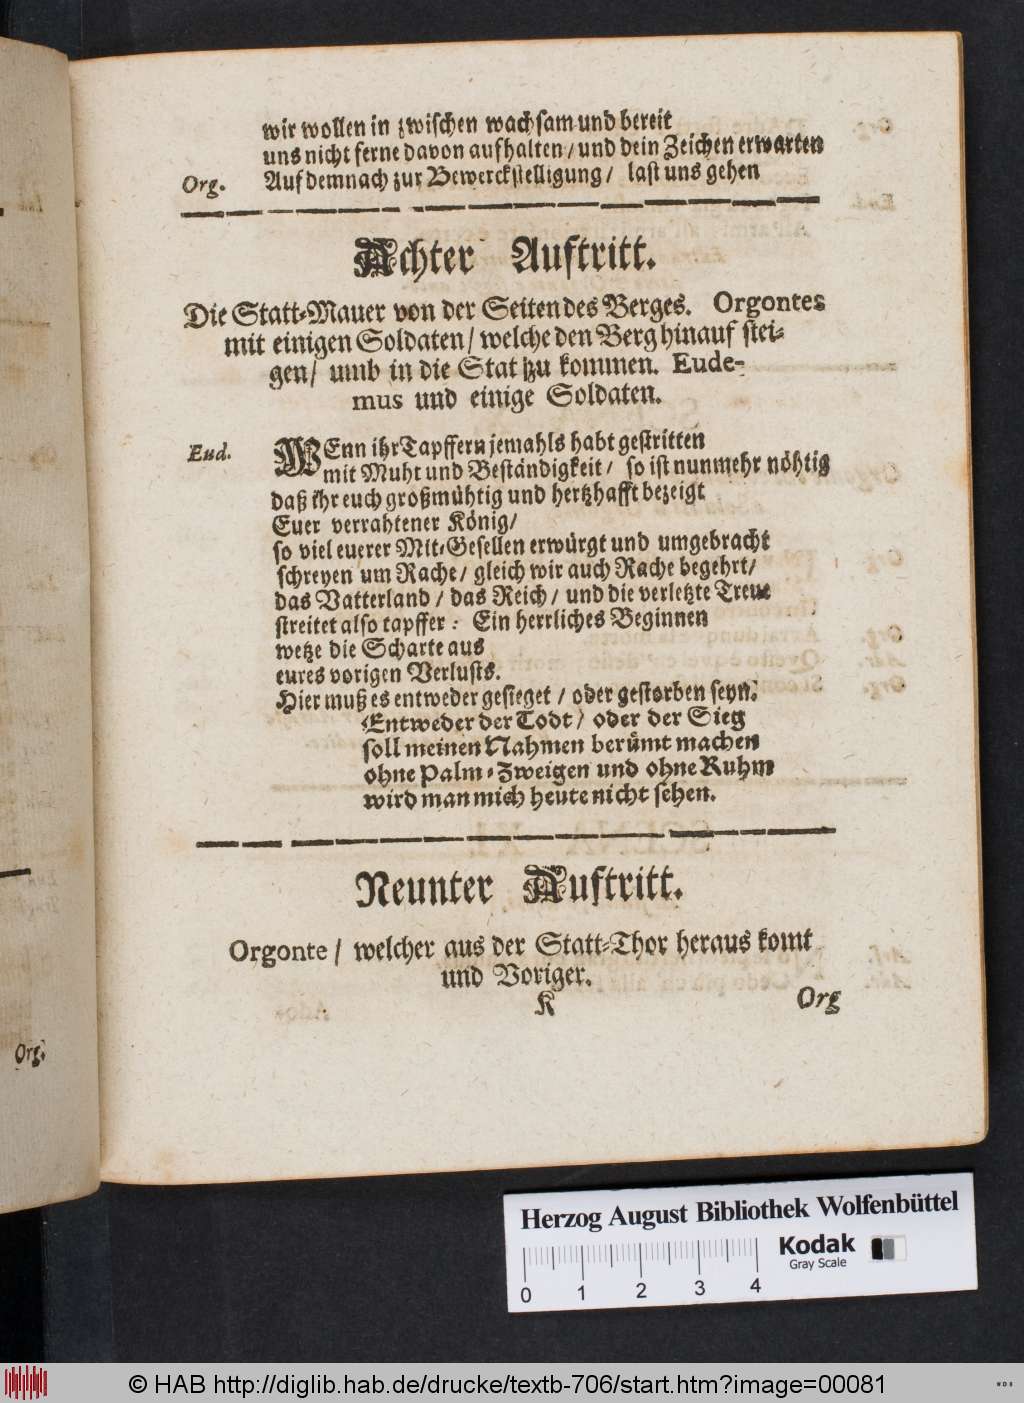 wir wollen in zwischen wachsam und bereit
uns nicht ferne davon aufhalten / und dein Zeichen erwarten
Org. Auf demnach zur Bewerckstelligung / last uns gehen
Achter Auftritt.
Die Statt-Mauer von der Seiten des Berges. Orgontes
mit einigen Soldaten / welche den Berg hinauf stei-
gen / umb in die Stat tzu kommen. Eude-
mus und einige Soldaten.
Eud. WEnn ihr Tapffern jemahls habt gestritten
mit Muht und Beständigkeit / so ist nunmehr nöhtig
daß ihr euch großmühtig und hertzhafft bezeigt
Euer verrahtener König /
so viel euerer Mit-Gesellen erwürgt und umgebracht
schreyen um Rache / gleich wir auch Rache begehrt /
das Vatterland / das Reich / und die verletzte Treue
streitet also tapffer : Ein herrliches Beginnen
wetze die Scharte aus
eures vorigen Verlusts.
Hier muß es entweder gesieget / oder gestorben seyn.
Entweder der Todt / oder der Sieg
soll meinen Nahmen berümt machen
ohne Palm-Zweigen und ohne Ruhm
wird man mich heute nicht sehen.
Neunter Auftritt.
Orgonte / welcher aus der Statt-Thor heraus komt
und Voriger.
K Org
Org.
Herzog August Bibliothek Wolfenbüttel
Kodak
Gray Scale
0 1 2 3 4
© HAB http://diglib.hab.de/drucke/textb-706/start.htm?image=00081